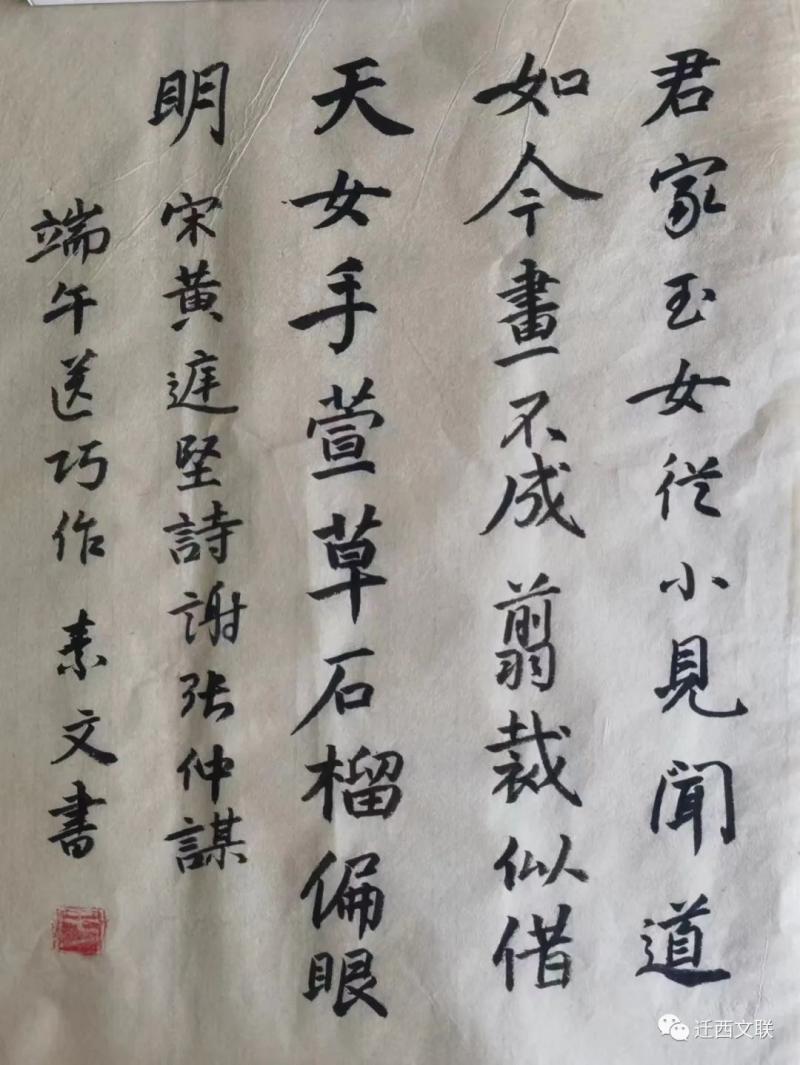 君家玉女從小見聞道
如今畫不成翦裁似借
天女手萱草石榴偏眼
明 宋黃庭堅詩謝張仲謀
端午送巧作 素文書
迁西文联